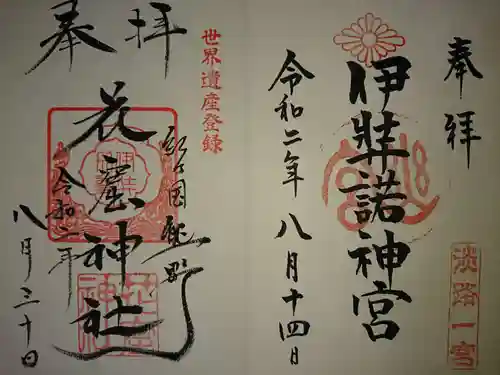 奉拝
伊弉諾神宮
令和二年八月十四日
淡路一宮
世界遺産登録
奉拝
紀国熊野
花窟神社
令和二年
八月三十日
花窟神社